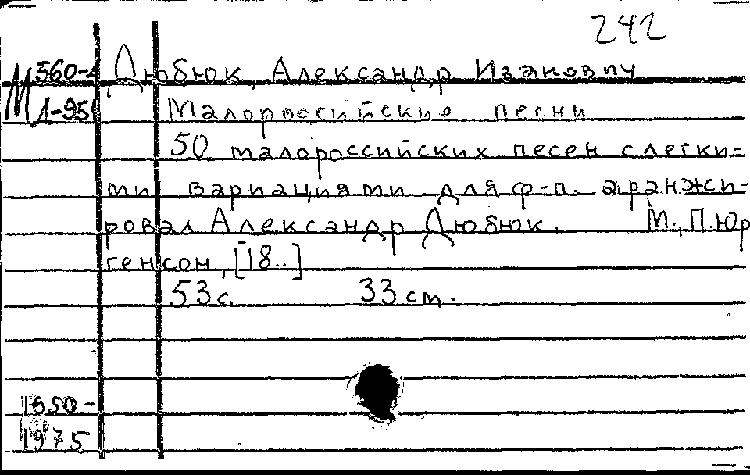 242
М 560-4 Дюбюк, Александр Иванович
Д-95 Малороссийские песни
50 малороссийских песен с легки-
ми вариациями для ф-п. аранжи-
ровал Александр Дюбюк. М., П. Юр
генсон, [18..]
53 с. 33 см.
1850-
1975